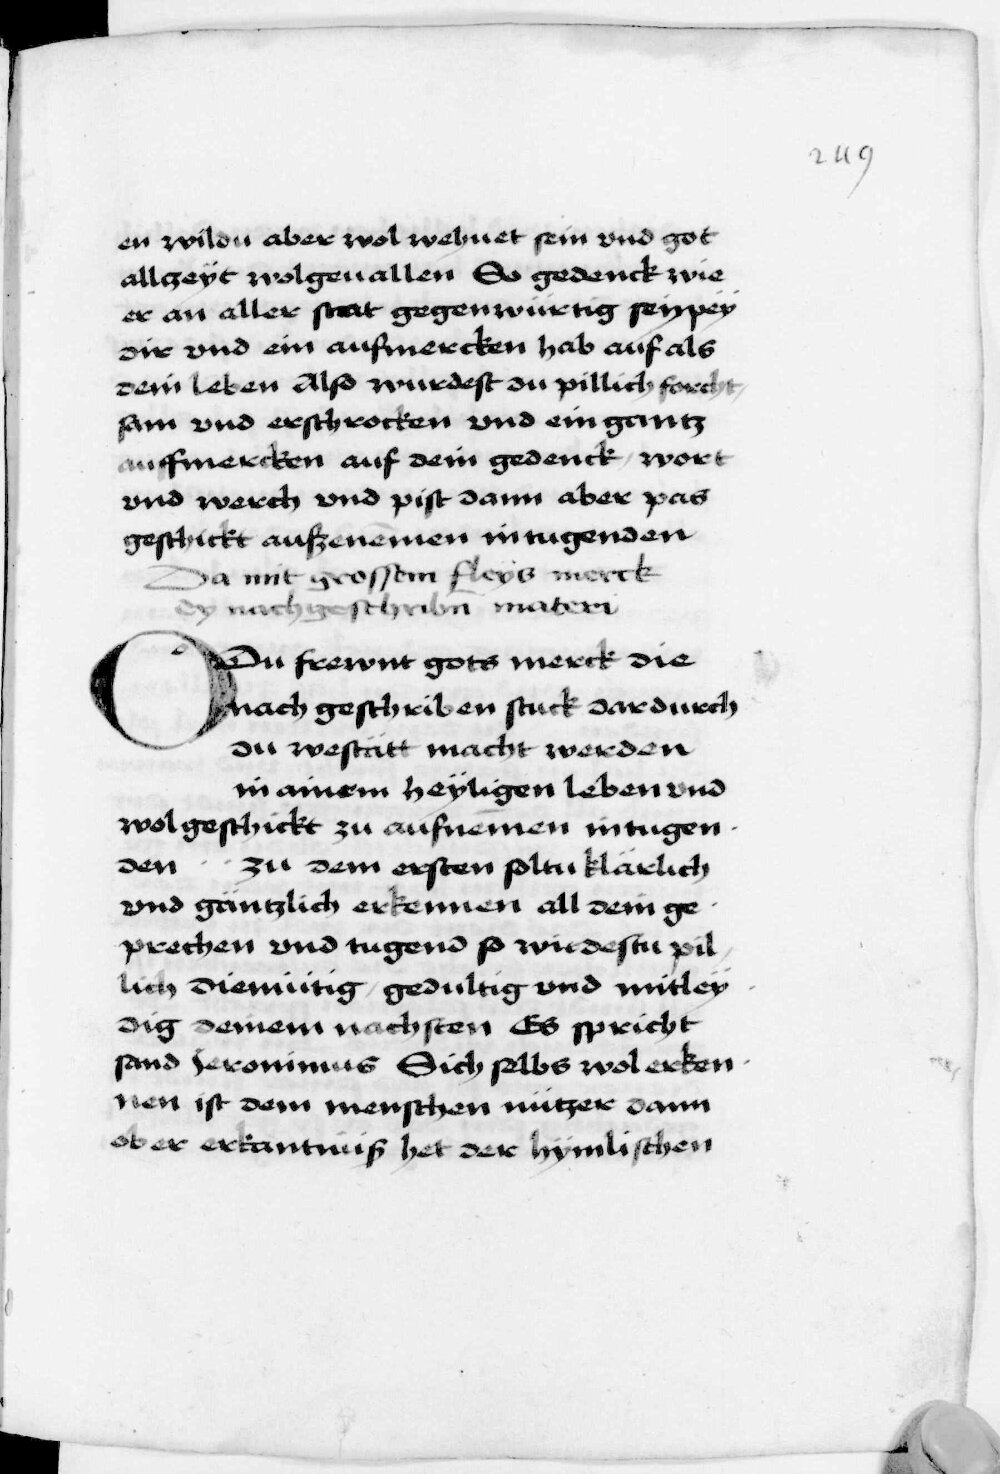 249
en wildu aber wol wehuet sein vnd got
allczeÿt wolgeuallen So gedenck wie
er an aller stat gegenwürtig seÿ peÿ
dir vnd ein aufmercken hab auf als
dein leben Also wurdest du pillich forcht/
sam vnd erschrocken vnd ein gantz
auffmercken auf dein gedenck / wort
vnd werch vnd pist dann aber pas
geschickt aufzenēmen in tugenden
Da mit grossem fleÿs merck
dy nachgeschribn̄ materi
O Du frewnt gots merck die
nach geschriben stuck dardurch
du westätt macht werden
in ainem heÿligen leben vnd
wol geschickt zu aufnēmen in tugen-
den Zu dem ersten soltu klärlich
vnd gäntzlich erkennen all dein ge-
prechen vnd tugend so wirdestu pil/
lich diemütig / gedultig vnd mitleÿ-
dig deinem nachsten Es spricht
sand Jeronimus Sich selbs wol erken-
nen ist dem menschen nützer dann
ob er erkantnüß het der hÿmlischen